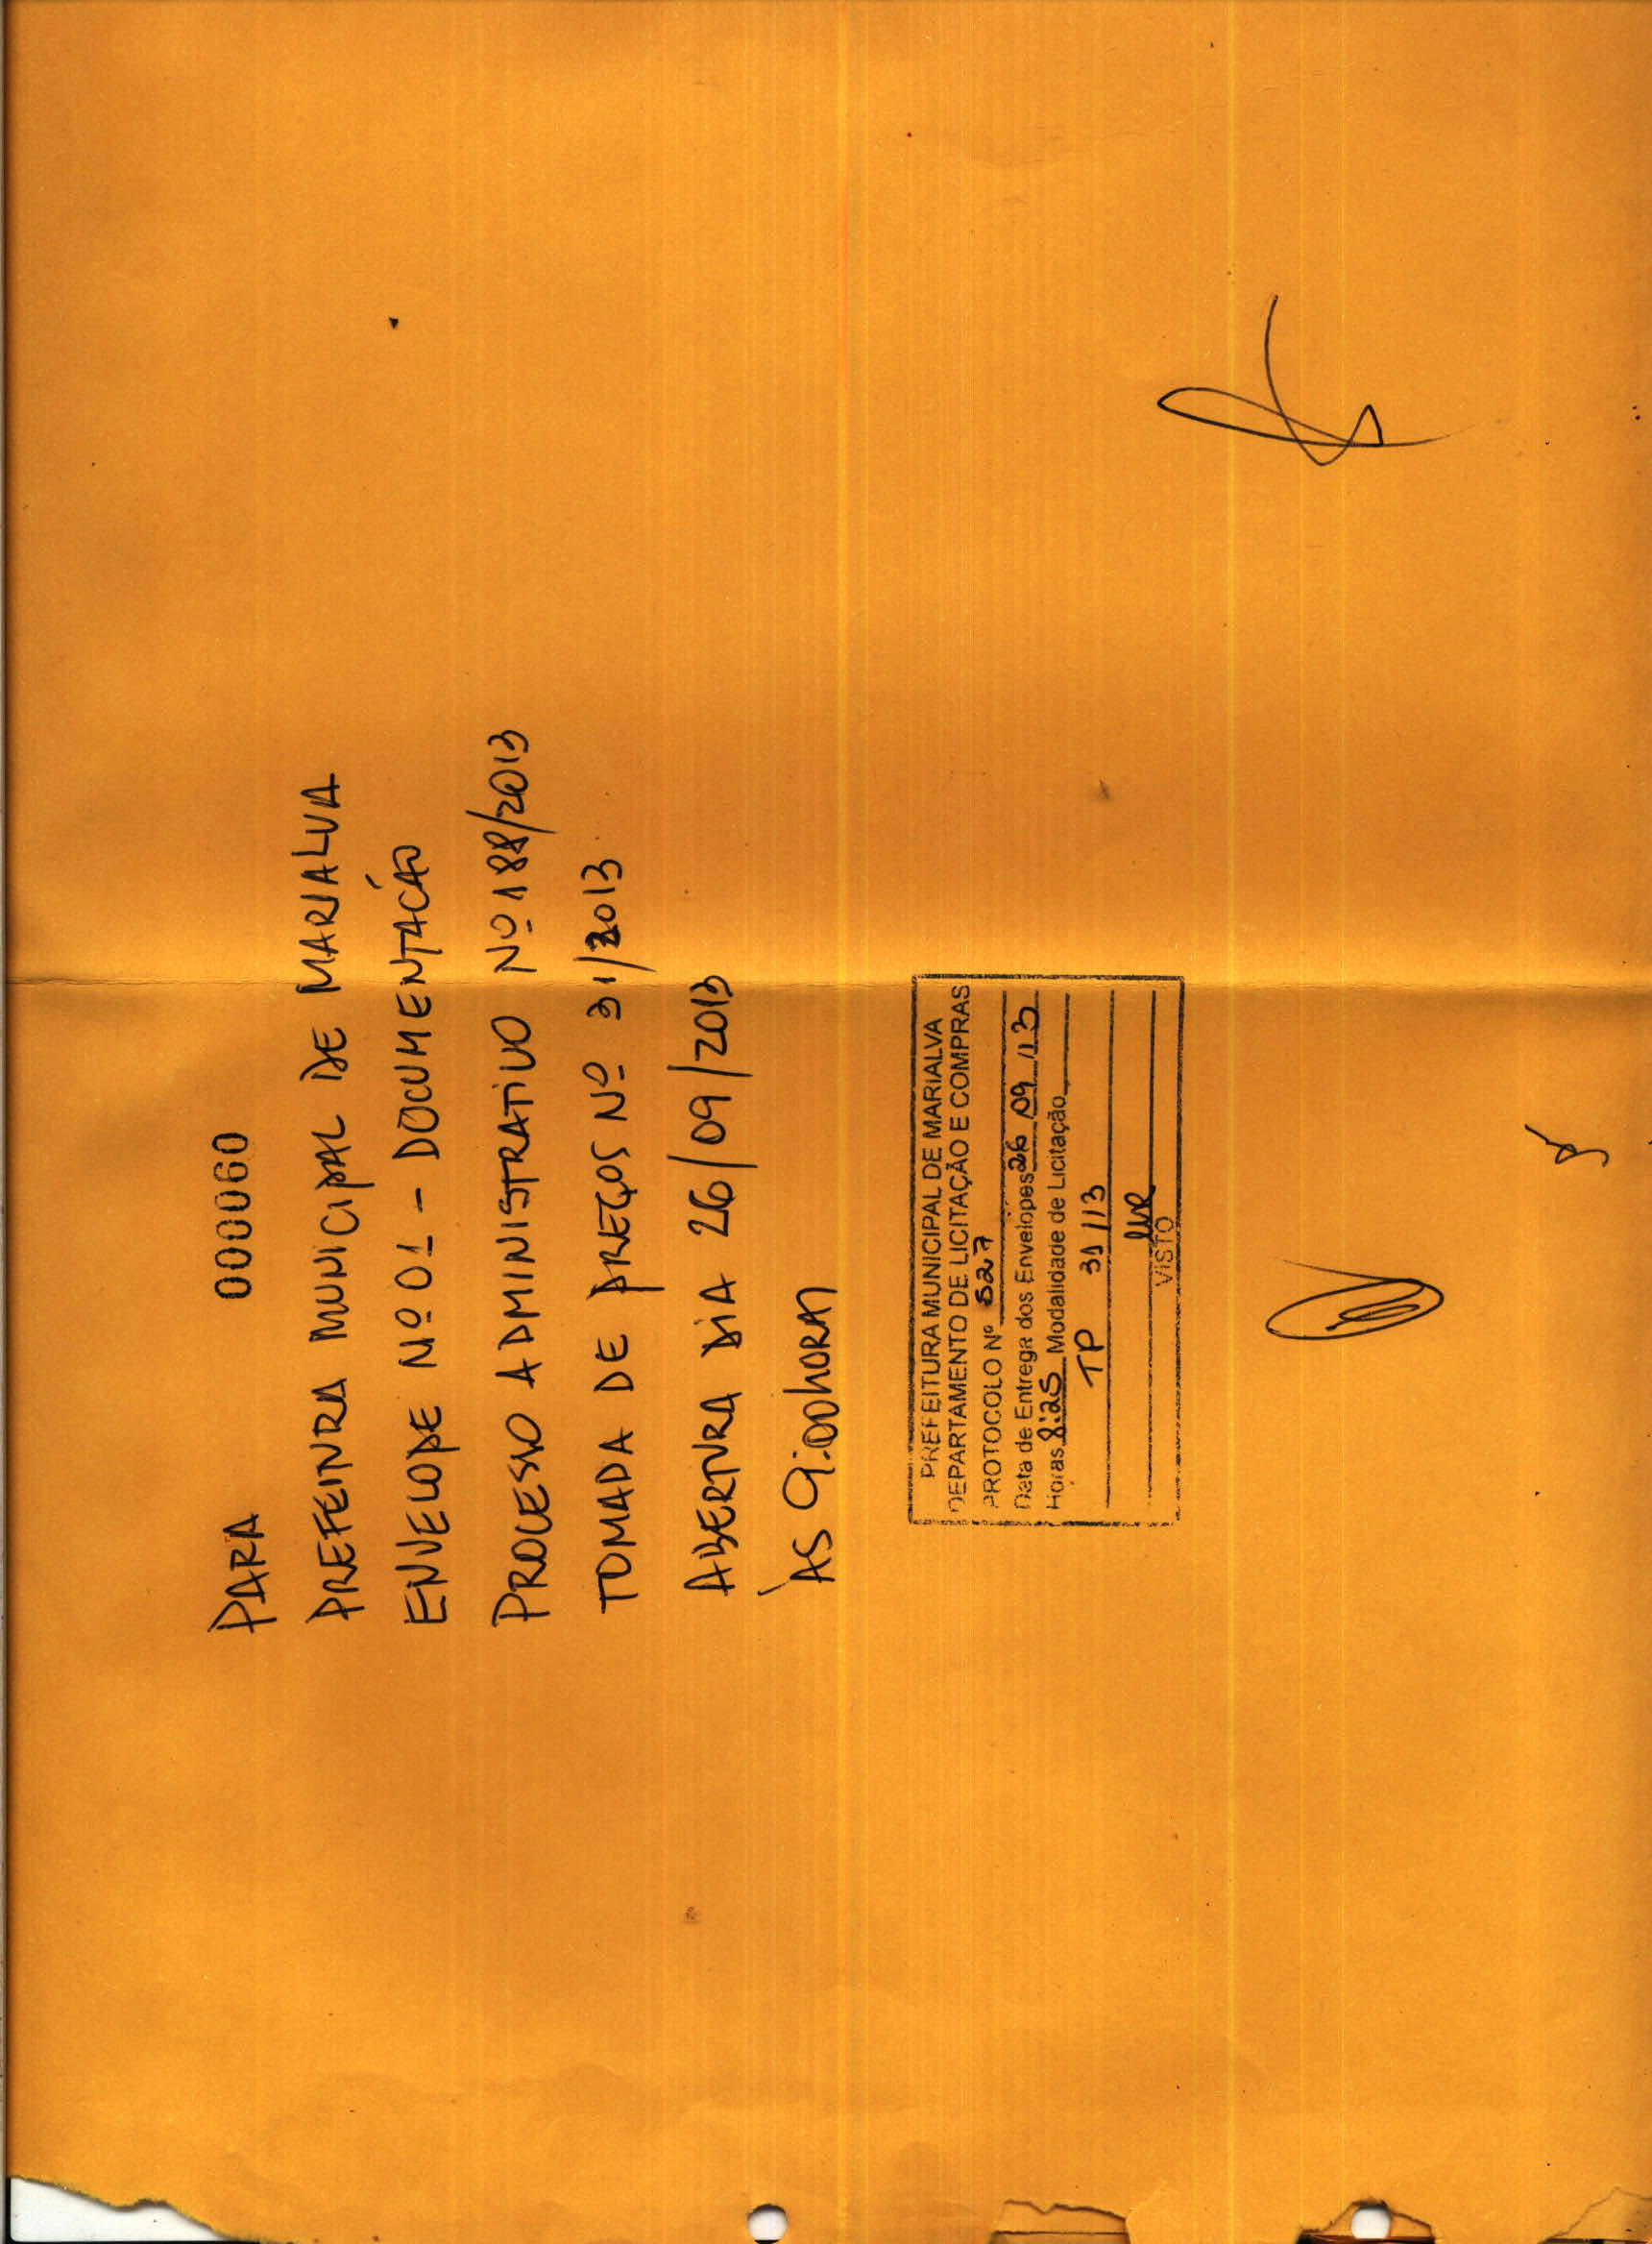 000060
PARA
PREFEITURA MUNICIPAL DE MARIALVA
ENVELOPE Nº 01 - DOCUMENTAÇÃO
PROCESSO ADMINISTRATIVO Nº 188/2013
TOMADA DE PREÇOS Nº 31/2013
ABERTURA DIA 26/09/2013
ÀS 9:00 HORAS
PREFEITURA MUNICIPAL DE MARIALVA
DEPARTAMENTO DE LICITAÇÃO E COMPRAS
PROTOCOLO Nº 527
Data de Entrega dos Envelopes 26/09/13
Horas 8:25 Modalidade de Licitação
TP 31/13
VISTO